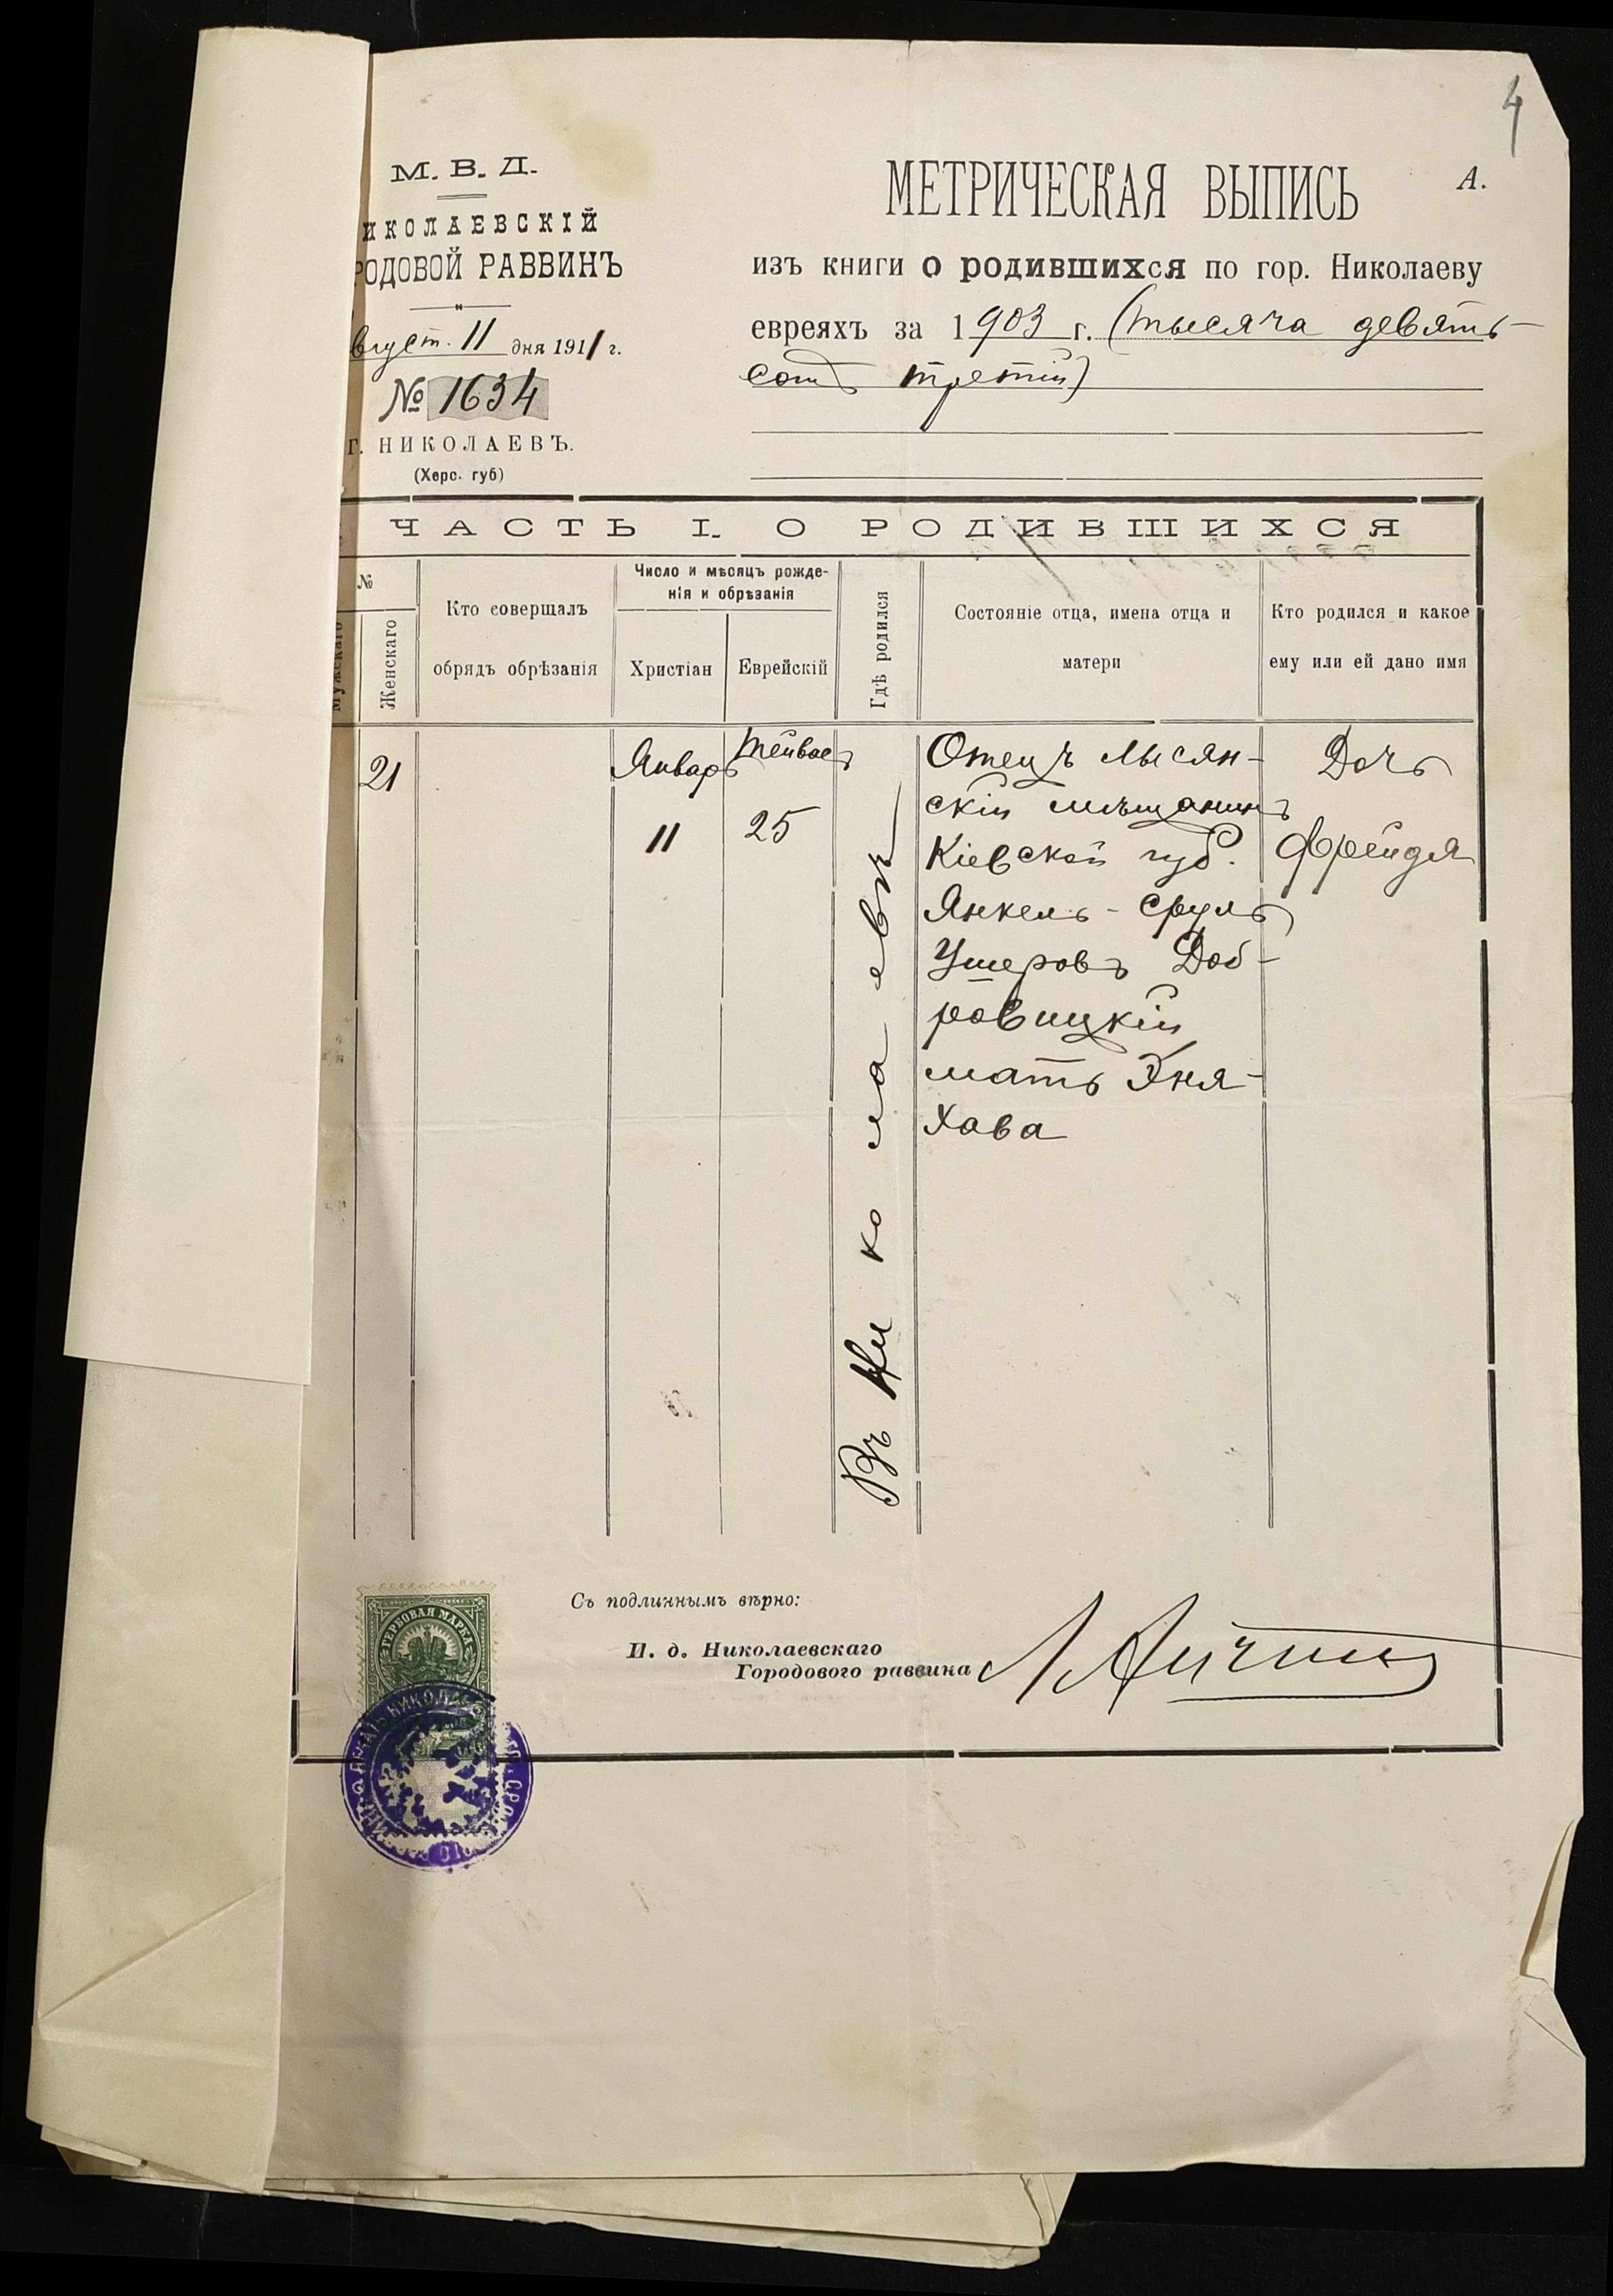 4
М. В. Д.
ИКОЛАЕВСКІЙ
РОДОВОЙ РАВВИНЪ
вгуст. 11 дня 1911 г.
№ 1634
Г. НИКОЛАЕВЪ.
(Херс. губ)
А.
МЕТРИЧЕСКАЯ ВЫПИСЬ
изъ книги о родившихся по гор. Николаеву
евреяхъ за 1903 г. (тысяча девять-
сотъ третій)
ЧАСТЬ I. О РОДИВШИХСЯ
№
Мужскаго
Женскаго
Кто совершалъ
обрядъ обрѣзанія
Число и мѣсяцъ рожде-
нія и обрѣзанія
Христіан
Еврейскій
Гдѣ родился
Состояніе отца, имена отца и
матери
Кто родился и какое
ему или ей дано имя
21
Январь
11
Тейвесъ
25
Въ Николаевѣ
Отецъ Лысян-
скій мѣщанинъ
Кіевской губ.
Янкель-Сруль
Ушеровъ Доб-
ровицкій
мать Эня-
Хава
Дочь
Фрейдя
Съ подлиннымъ вѣрно:
И. д. Николаевскаго
Городового раввина
ГЕРБОВАЯ МАРКА